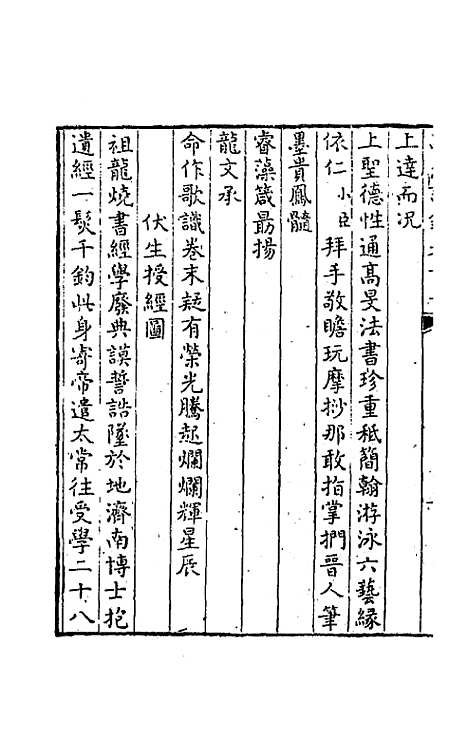 上達而况
上聖德性通高旻法書珍重秪簡翰游泳六藝緣
依仁小臣拜手敬瞻玩摩挱那敢指掌捫晋人筆
墨貴鳳髓
睿藻箴勗揚
龍文承
命作歌識卷末疑有榮光騰起爛爛輝星辰
伏生授經圖
祖龍燒書經學廢典謨誓誥墜於地濟南博士抱
遺經一髮千鈞此身寄帝遣太常往受學二十八